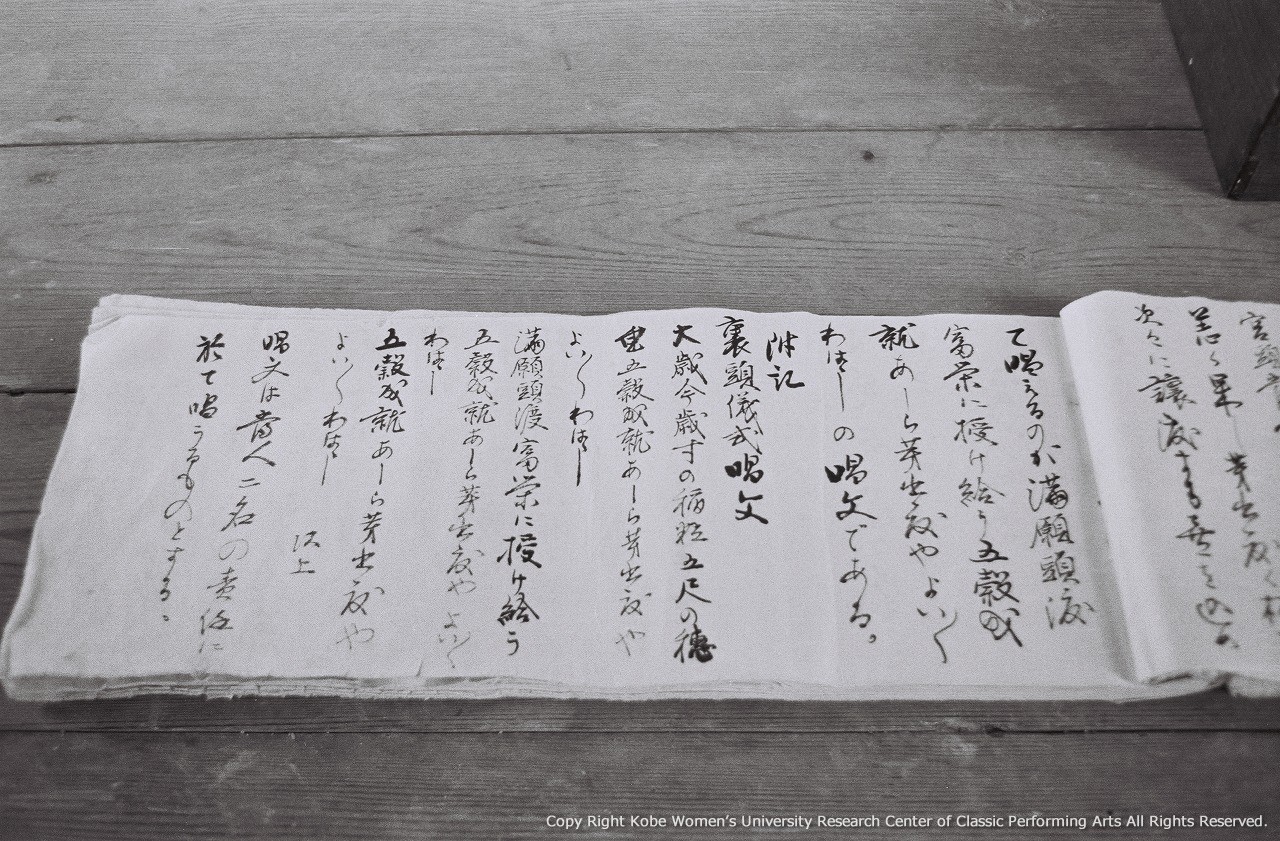 次々に讓渡す
て唱えるのが満願頭渡
富栄に授け給う五穀成
就あーら芽出度や よい〱
わはーの唱文である。
附記
裏頭儀式唱文
大歳今歳寸の稲粒五尺の穂
五穀成就あーら芽出度や
よい〱わはー
満願頭渡富栄に授け給う
五穀成就あーら芽出度や よい〱
わはー
五穀成就あーら芽出度や
よい〱わはー
以上
唱文は当人二名の責任に
於て唱うるものとする。
Copy Right Kobe Women's University Research Center of Classic Performing Arts All Rights Reserved.